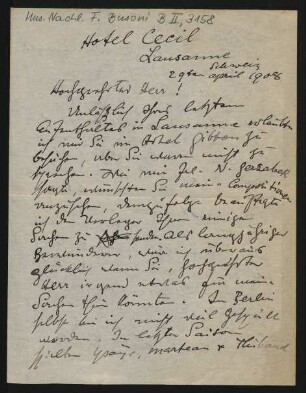 Mus. Nachl. F. Busoni B II, 3158
Hotel Cecil
Lausanne
Schweiz
29ten april 1908
Hochgeehrter Herr!
Anlässlich Ihres letzten
Aufenthaltes in Lausanne erlaubte
ich mir Sie im Hotel Gibbon zu
besuchen, aber Sie waren nicht zu
sprechen. Wie mir
sagte, wünschten Sie meine Compositionen
demzufolge beauftragte
ich den Verleger Ihnen einige
Sachen zu senden. Als langjähriger
Bewunderer, wäre ich überaus
glücklich wenn Sie, hochgeehrter
Herr irgend etwas für meine
Sachen thun könnten. In Berlin
selbst bin ich nicht viel gespielt
worden. In letzter Saison
spielten Ysaÿe, Marteau & Thibaud